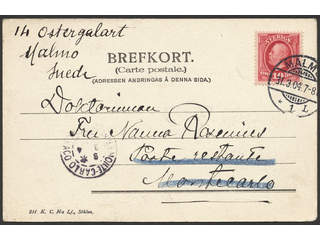 14 Ostergatart
Malmo
Suede
BREFKORT.
(Carte postale.)
(ADRESSEN ANDRINGAS Å DENNA SIDA.)
SVERIGE
MALMÖ
31.3.04.7-8
1 L
Doktorinnan
Fru Nanna Rosenius
Poste restante
Montecarlo
MONTE-CARLO